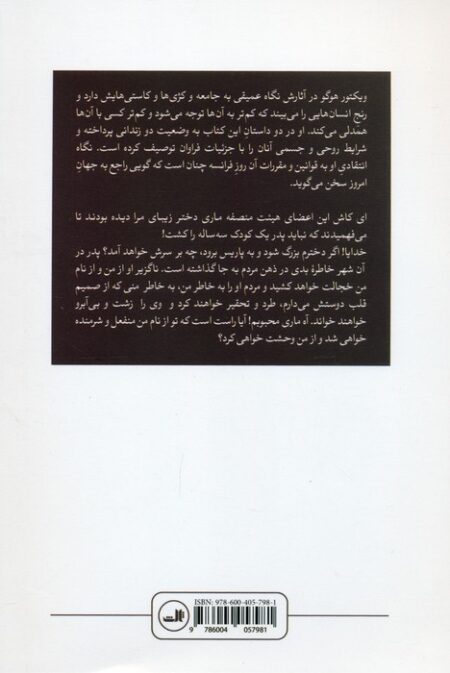 ویکتور هوگو در آثارش نگاه عمیقی به جامعه و کژی‌ها و کاستی‌هایش دارد و
رنج انسان‌هایی را می‌بیند که کم‌تر به آن‌ها توجه می‌شود و کم‌تر کسی با آن‌ها
همدلی می‌کند. او در دو داستانِ این کتاب به وضعیت دو زندانی پرداخته و
شرایط روحی و جسمی آنان را با جزئیات فراوان توصیف کرده است. نگاه
انتقادی او به قوانین و مقررات آن روزِ فرانسه چنان است که گویی راجع به جهانِ
امروز سخن می‌گوید.
ای کاش این اعضای هیئت منصفه ماری دختر زیبای مرا دیده بودند تا
می‌فهمیدند که نباید پدر یک کودک سه‌ساله را کشت!
خدایا! اگر دخترم بزرگ شود و به پاریس برود، چه بر سرش خواهد آمد؟ پدر در
آن شهر خاطرهٔ بدی در ذهن مردم به جا گذاشته است. ناگزیر او از من و از نام
من خجالت خواهد کشید و مردم او را به خاطر من، به خاطر منی که از صمیم
قلب دوستش می‌دارم، طرد و تحقیر خواهند کرد و وی را زشت و بی‌آبرو
خواهند خواند. آه ماری محبوبم! آیا راست است که تو از نام من منفعل و شرمنده
خواهی شد و از من وحشت خواهی کرد؟
ISBN: 978-600-405-798-1
ثالث
9 786004 057981